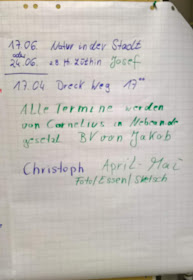 17.06. Natur in der Stadt
oder
24.06. Josef
17.04 Dreck Weg 17°°
Alle Termine werden
von Cornelius in
gesetzt. BV von Jakob
Christoph April-Mai
Foto/Essen/